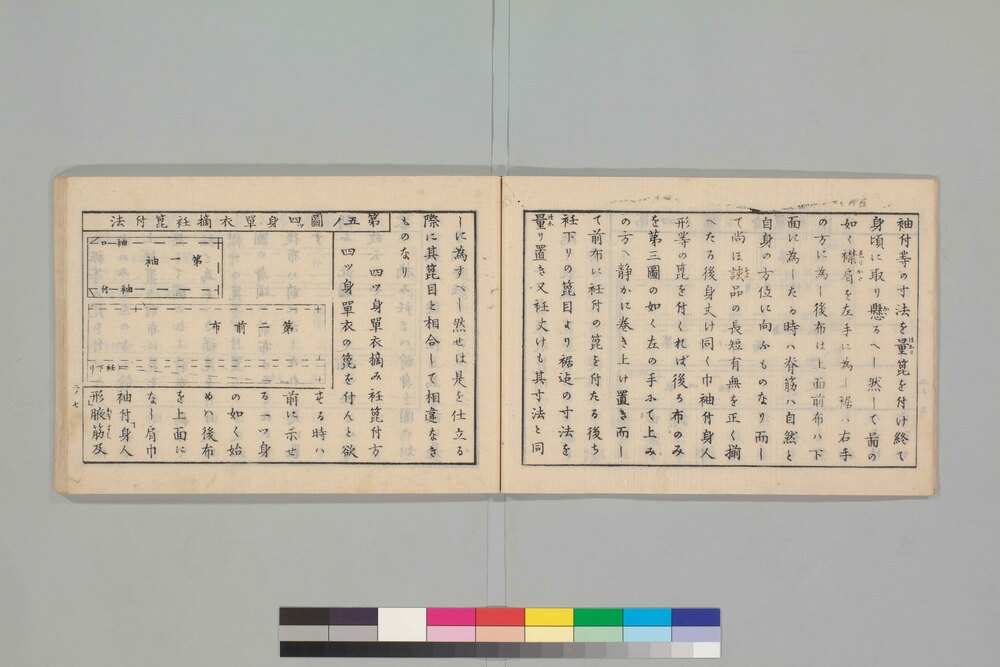 袖付等の寸法を量篦を付け終て
身頃に取り懸るへし然して前の
如く襟肩を左手に為し裾ハ右手
の方に為し後布は上面前布ハ下
面に為したる時ハ脊筋ハ自然と
自身の方位に向ふものなり而し
て尚ほ該品の長短有無を正く揃
へたる後身丈け同く巾袖付身人
形等の篦を付くれば後ろ布のみ
を第三圖の如く左の手にて上み
の方へ静かに巻き上け置き而し
て前布に衽付の篦を付たる後ち
衽下りの篦目より裾迠の寸法を
量り置き又衽丈けも其寸法と同
しに為すへし然せは是を仕立る
際に其篦目と相合して相違なき
ものなり
第五 四ツ身單衣摘み衽篦付方
四ツ身單衣の篦を付んと欲
圖ノ四ツ身單衣摘衽篦付法
第一袖
袖口
袖付
第二前布
衽下り
せる時ハ
前に示せ
る一ツ身
の如く始
めハ後布
を上面に
なし肩巾
袖付身人
形脈筋及
二ノ七